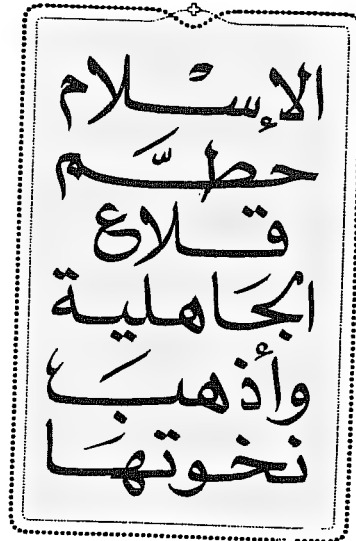 الإسْلام
حطَّم
قلاع
الجَاهلية
وأذهبَ
نخوتهَا